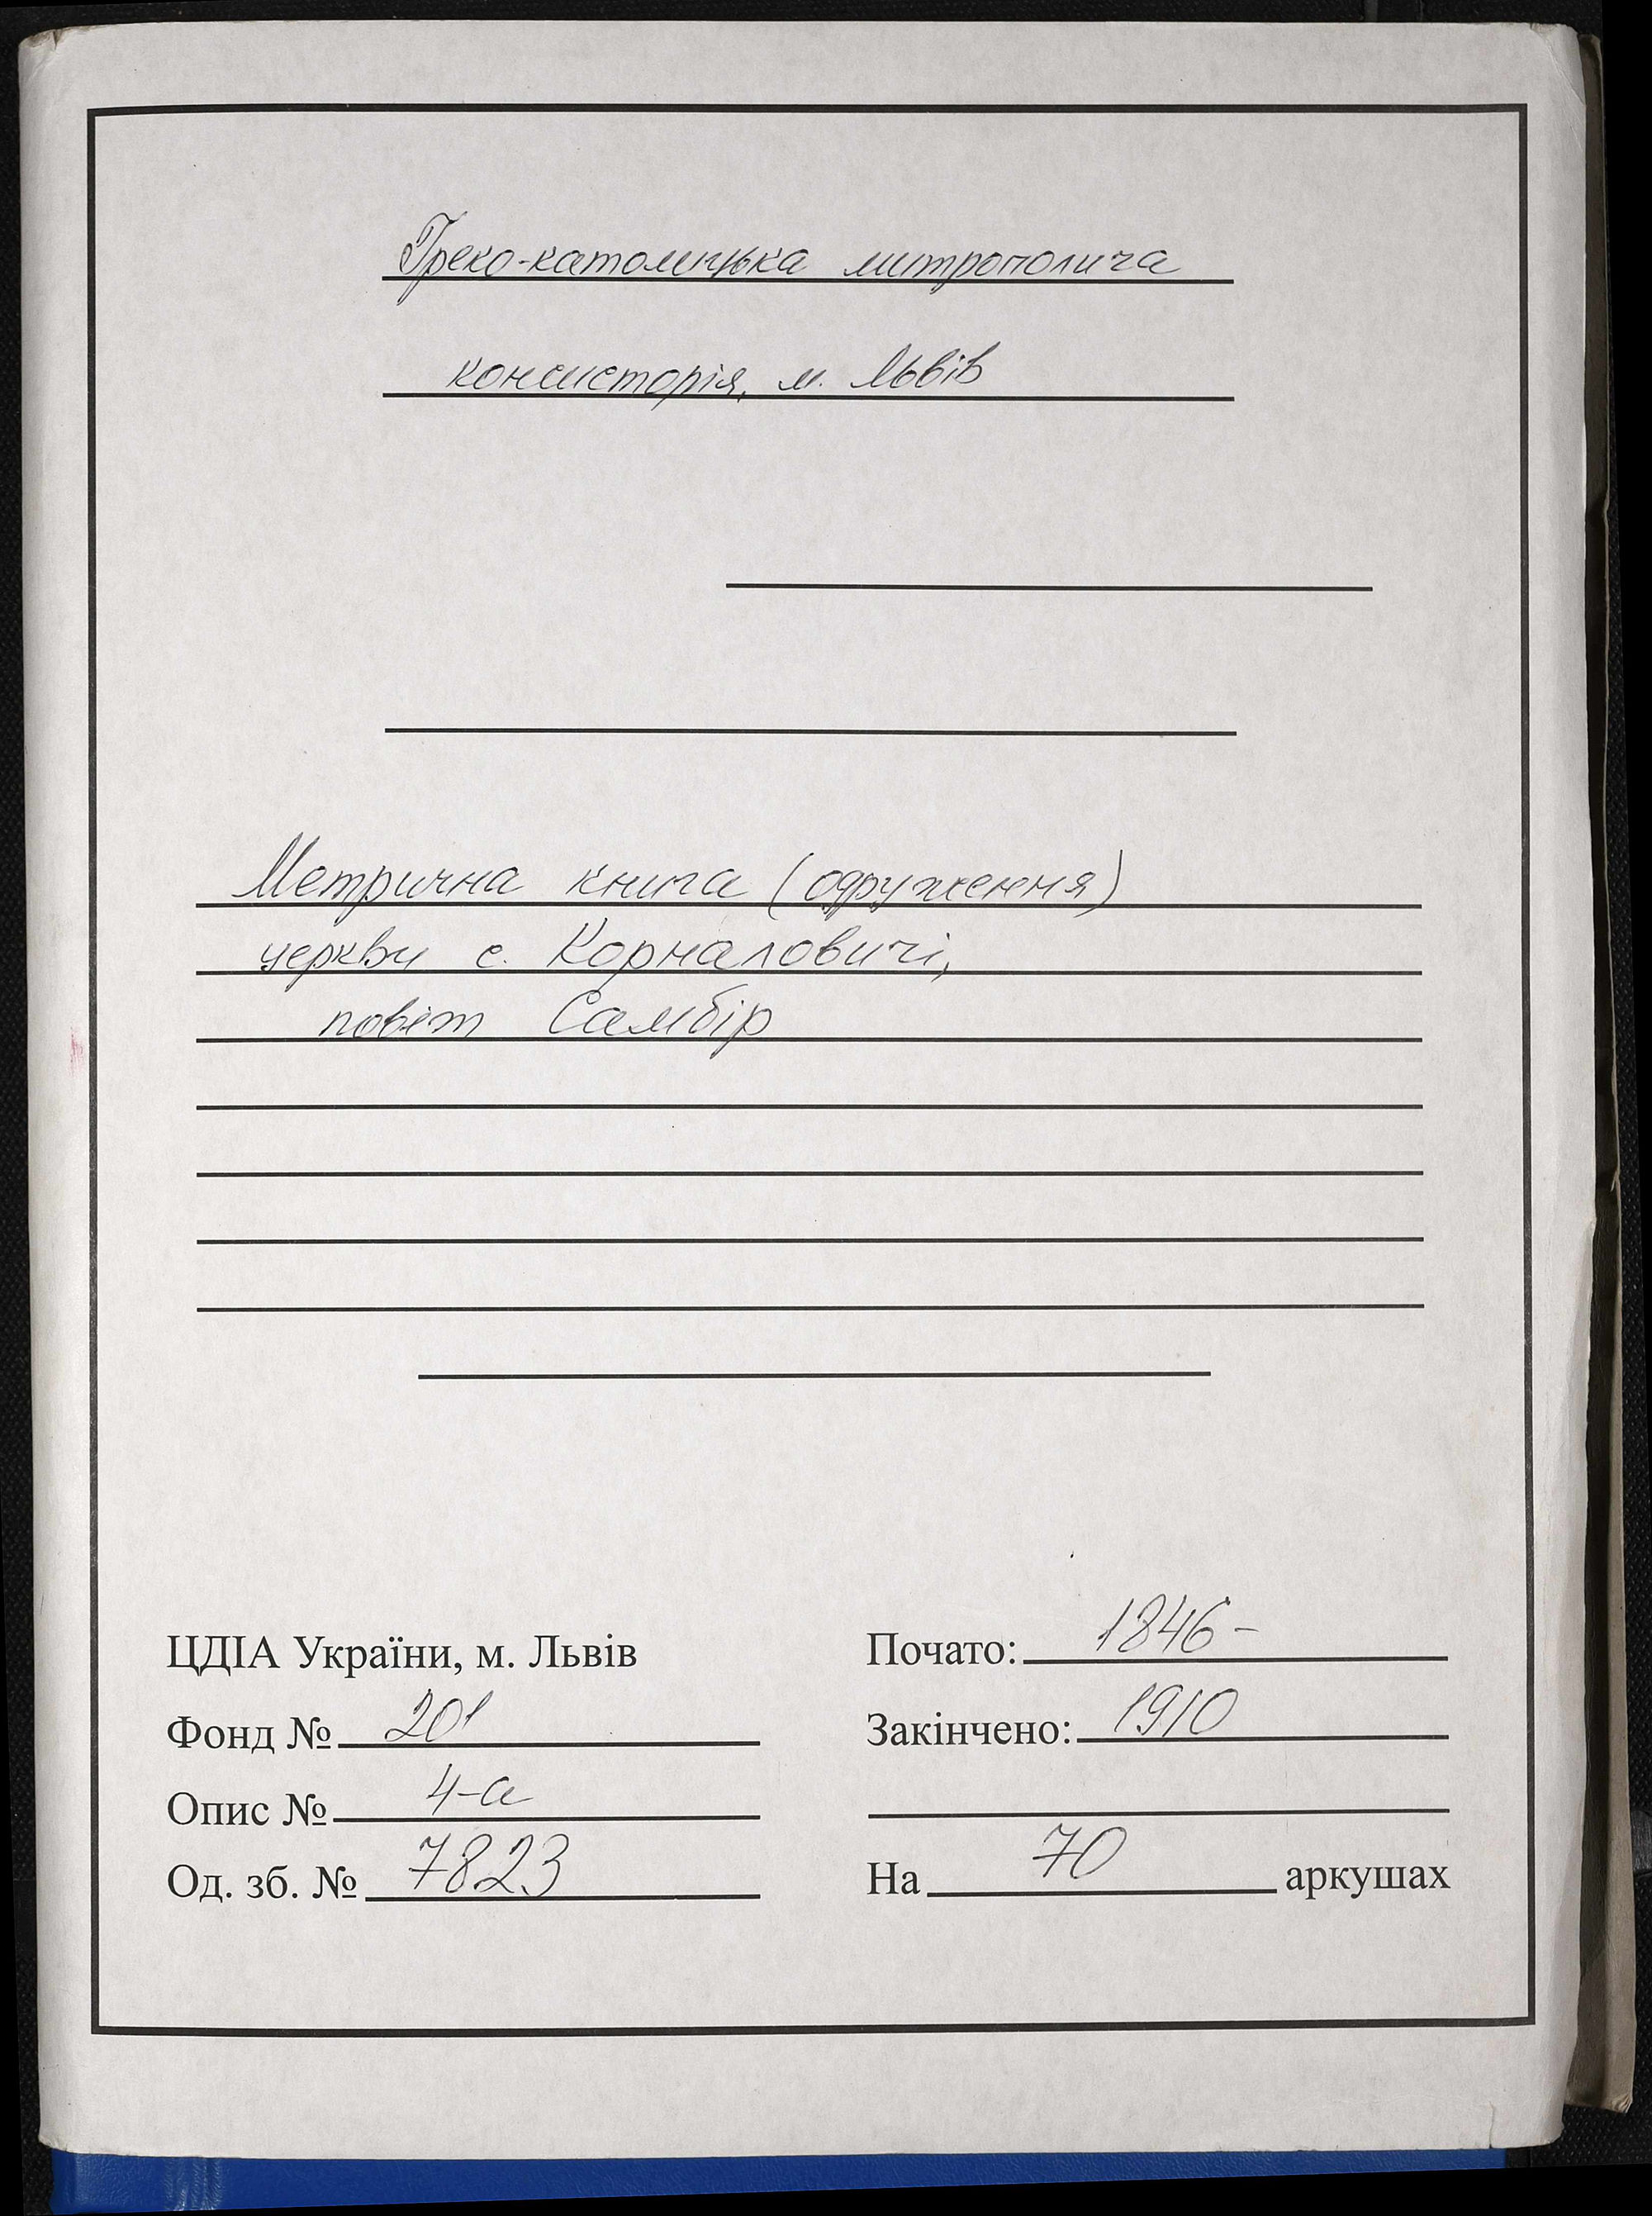 Греко-католицька митрополича
консисторія, м. Львів
Метрична книга (одруження)
церкви с. Корналовичі,
повіт Самбір
ЦДІА України, м. Львів
Фонд № 201
Опис № 4-а
Од. зб. № 7823
Почато: 1846-
Закінчено: 1910
На 70 аркушах